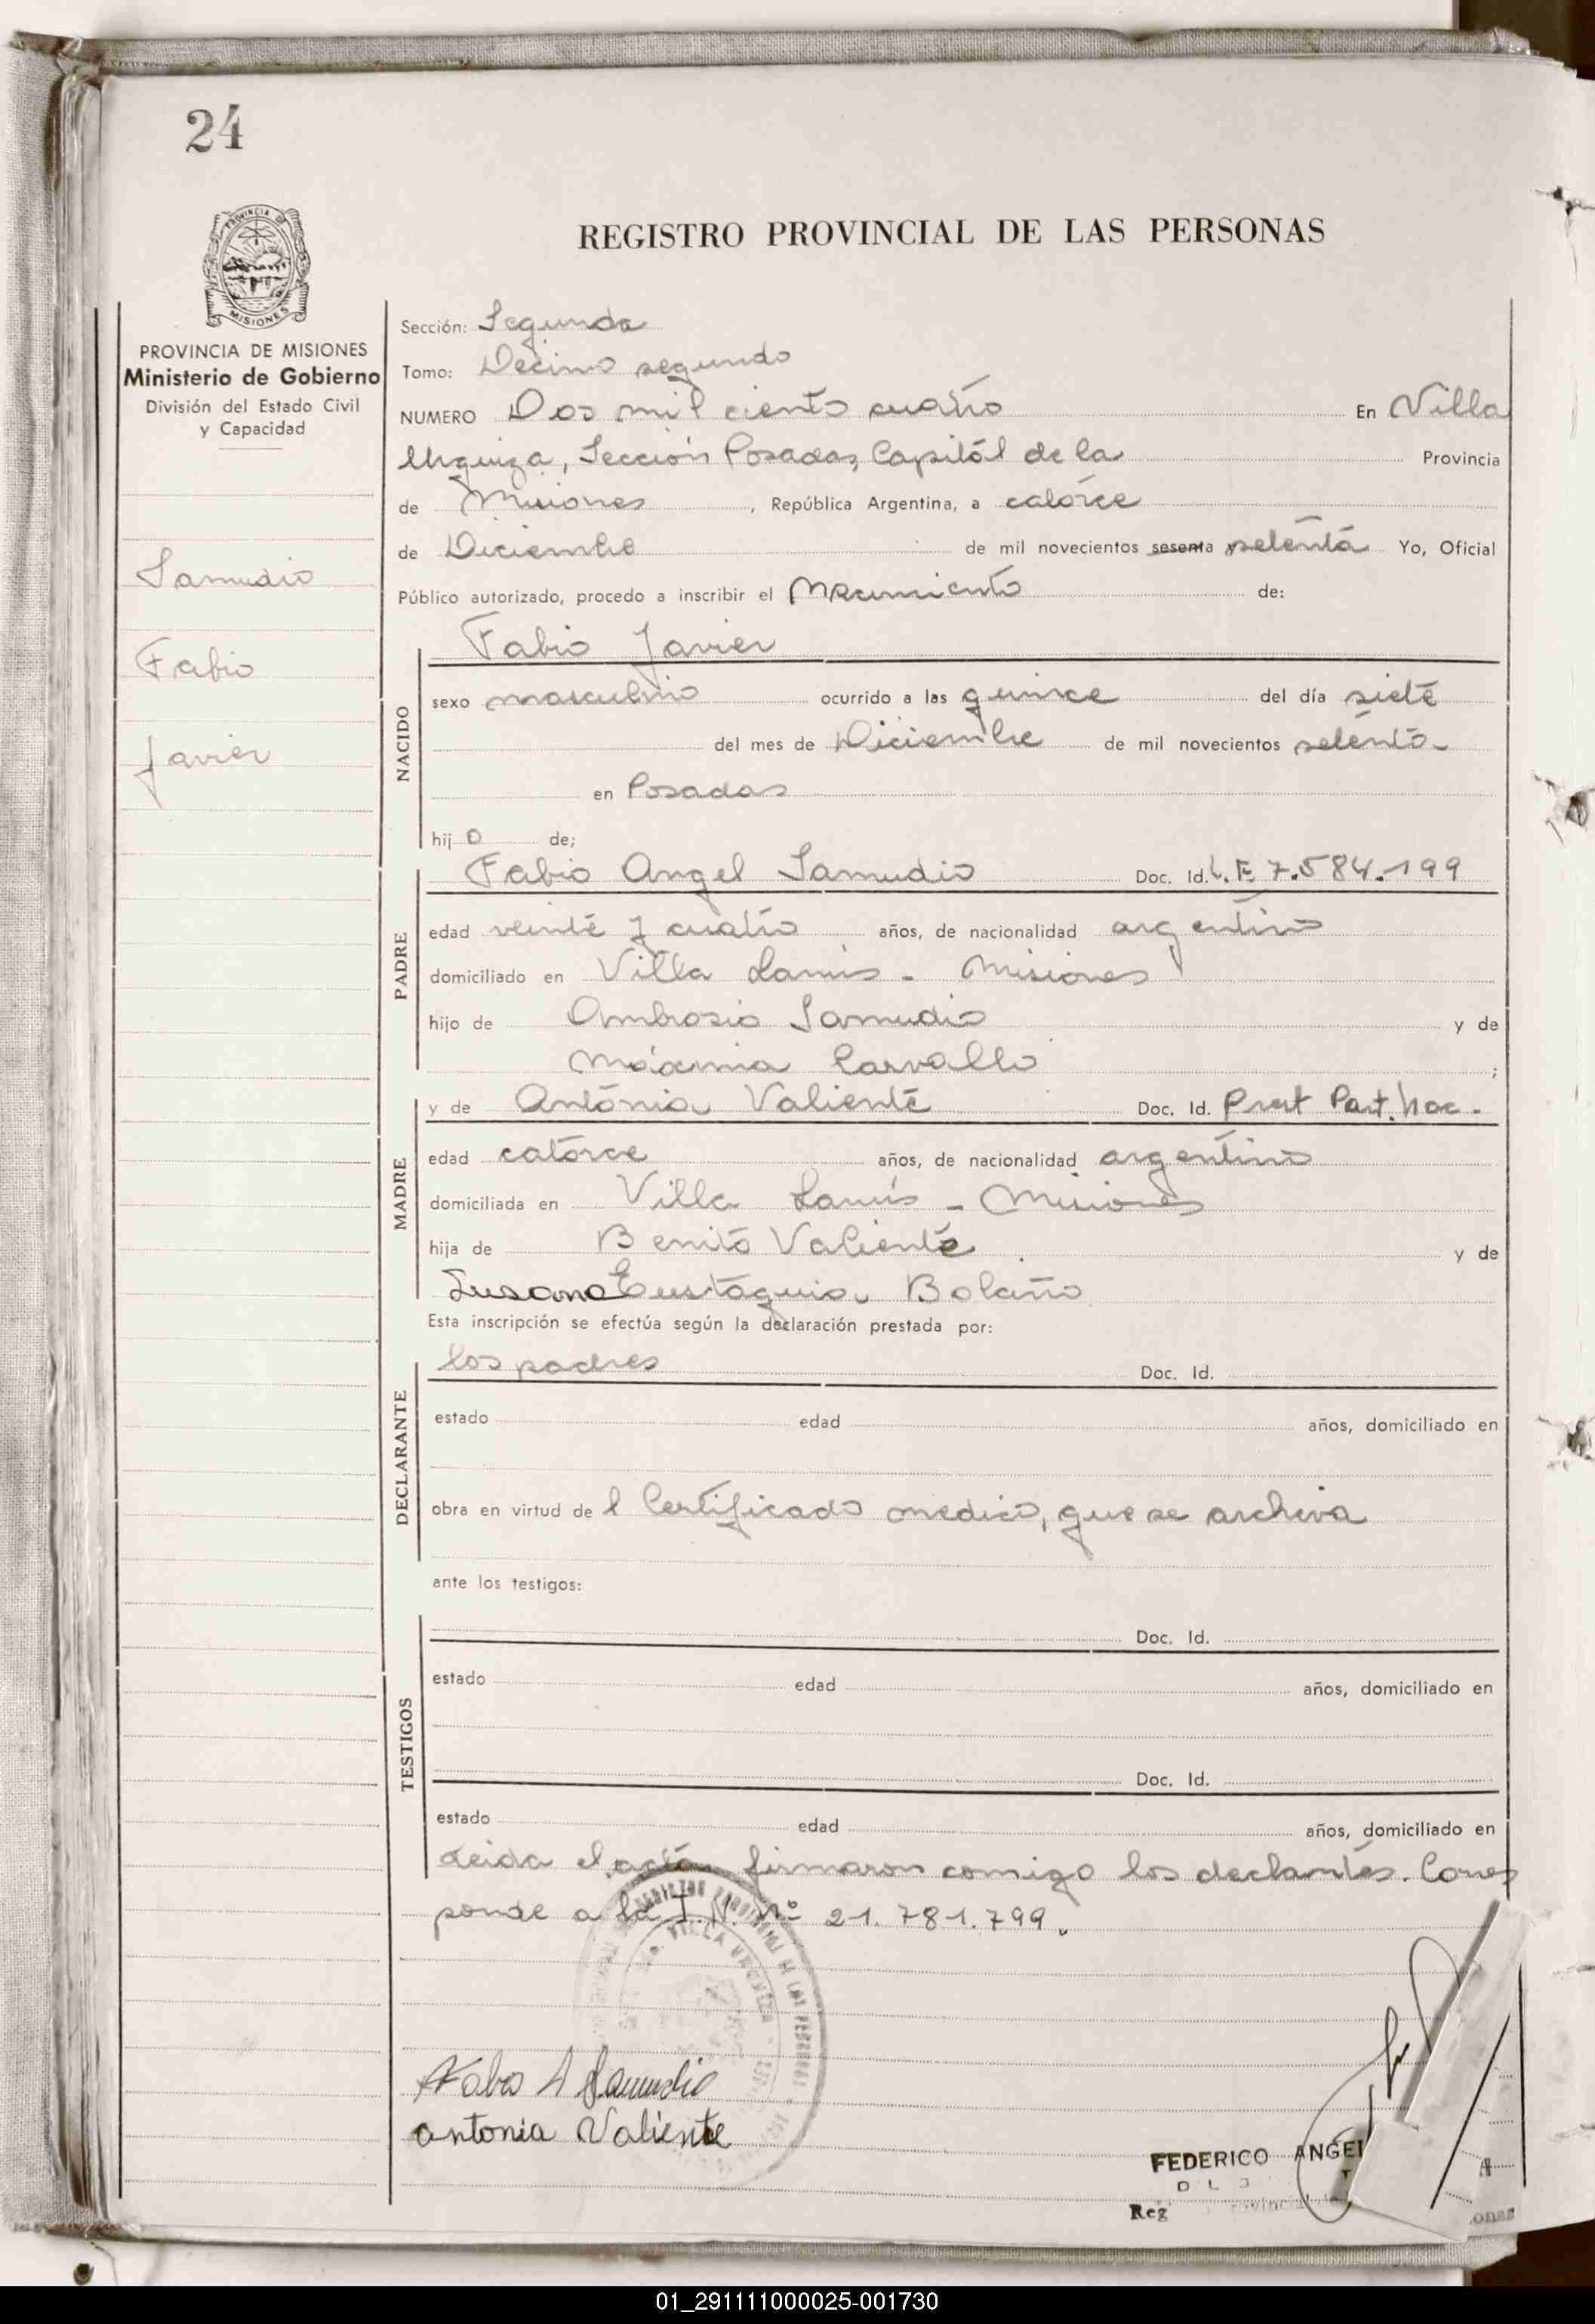 24
REGISTRO PROVINCIAL DE LAS PERSONAS
PROVINCIA DE MISIONES
MISIONES
PROVINCIA DE MISIONES
Ministerio de Gobierno
División del Estado Civil
y Capacidad
Samudio
Fabio
Javier
Sección: Segunda
Tomo: Decimo segundo
NUMERO Dos mil ciento cuatro En Villa
Urquiza, Sección Posadas, Capitál de la Provincia
de Misiones, República Argentina, a catorce
de Diciembre de mil novecientos sesenta setenta Yo, Oficial
Público autorizado, procedo a inscribir el Nacimiento de:
NACIDO
Fabio Javier
sexo masculino ocurrido a las quince del día siete
del mes de Diciembre de mil novecientos setenta-
en Posadas
hijo de;
PADRE
Fabio Angel Samudio Doc. Id. L.E. 7.584.199
edad veinte y cuatro años, de nacionalidad argentino
domiciliado en Villa Lanús - Misiones
hijo de Ambrosio Samudio y de
Máxima Carvallo ;
MADRE
y de Antonia Valiente Doc. Id. Prest Part. Nac.
edad catorce años, de nacionalidad argentina
domiciliada en Villa Lanús - Misiones
hija de Benito Valiente y de
Susana Eustaquia Bolaño
Esta inscripción se efectúa según la declaración prestada por:
DECLARANTE
los padres Doc. Id.
estado edad años, domiciliado en
obra en virtud de l Certificado medico, que se archiva
ante los testigos:
TESTIGOS
Doc. Id.
estado edad años, domiciliado en
Doc. Id.
estado edad años, domiciliado en
Leida el acta firmaron comigo los declantes. Corres
ponde a la I.N. Nº 21.781.799.
Fabio A Samudio
antonia Valiente
FEDERICO ANGEL
Reg
onas
01_291111000025-001730